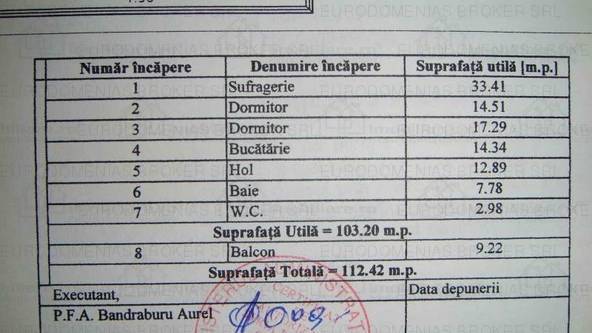 EURODOMENIAS BROKER SRL
Număr încăpere Denumire încăpere Suprafață utilă [m.p.]
1 Sufragerie 33.41
2 Dormitor 14.51
3 Dormitor 17.29
4 Bucătărie 14.34
5 Hol 12.89
6 Baie 7.78
7 W.C. 2.98
Suprafață Utilă = 103.20 m.p.
8 Balcon 9.22
Suprafață Totală = 112.42 m.p.
Executant, Data depunerii
P.F.A. Bandraburu Aurel